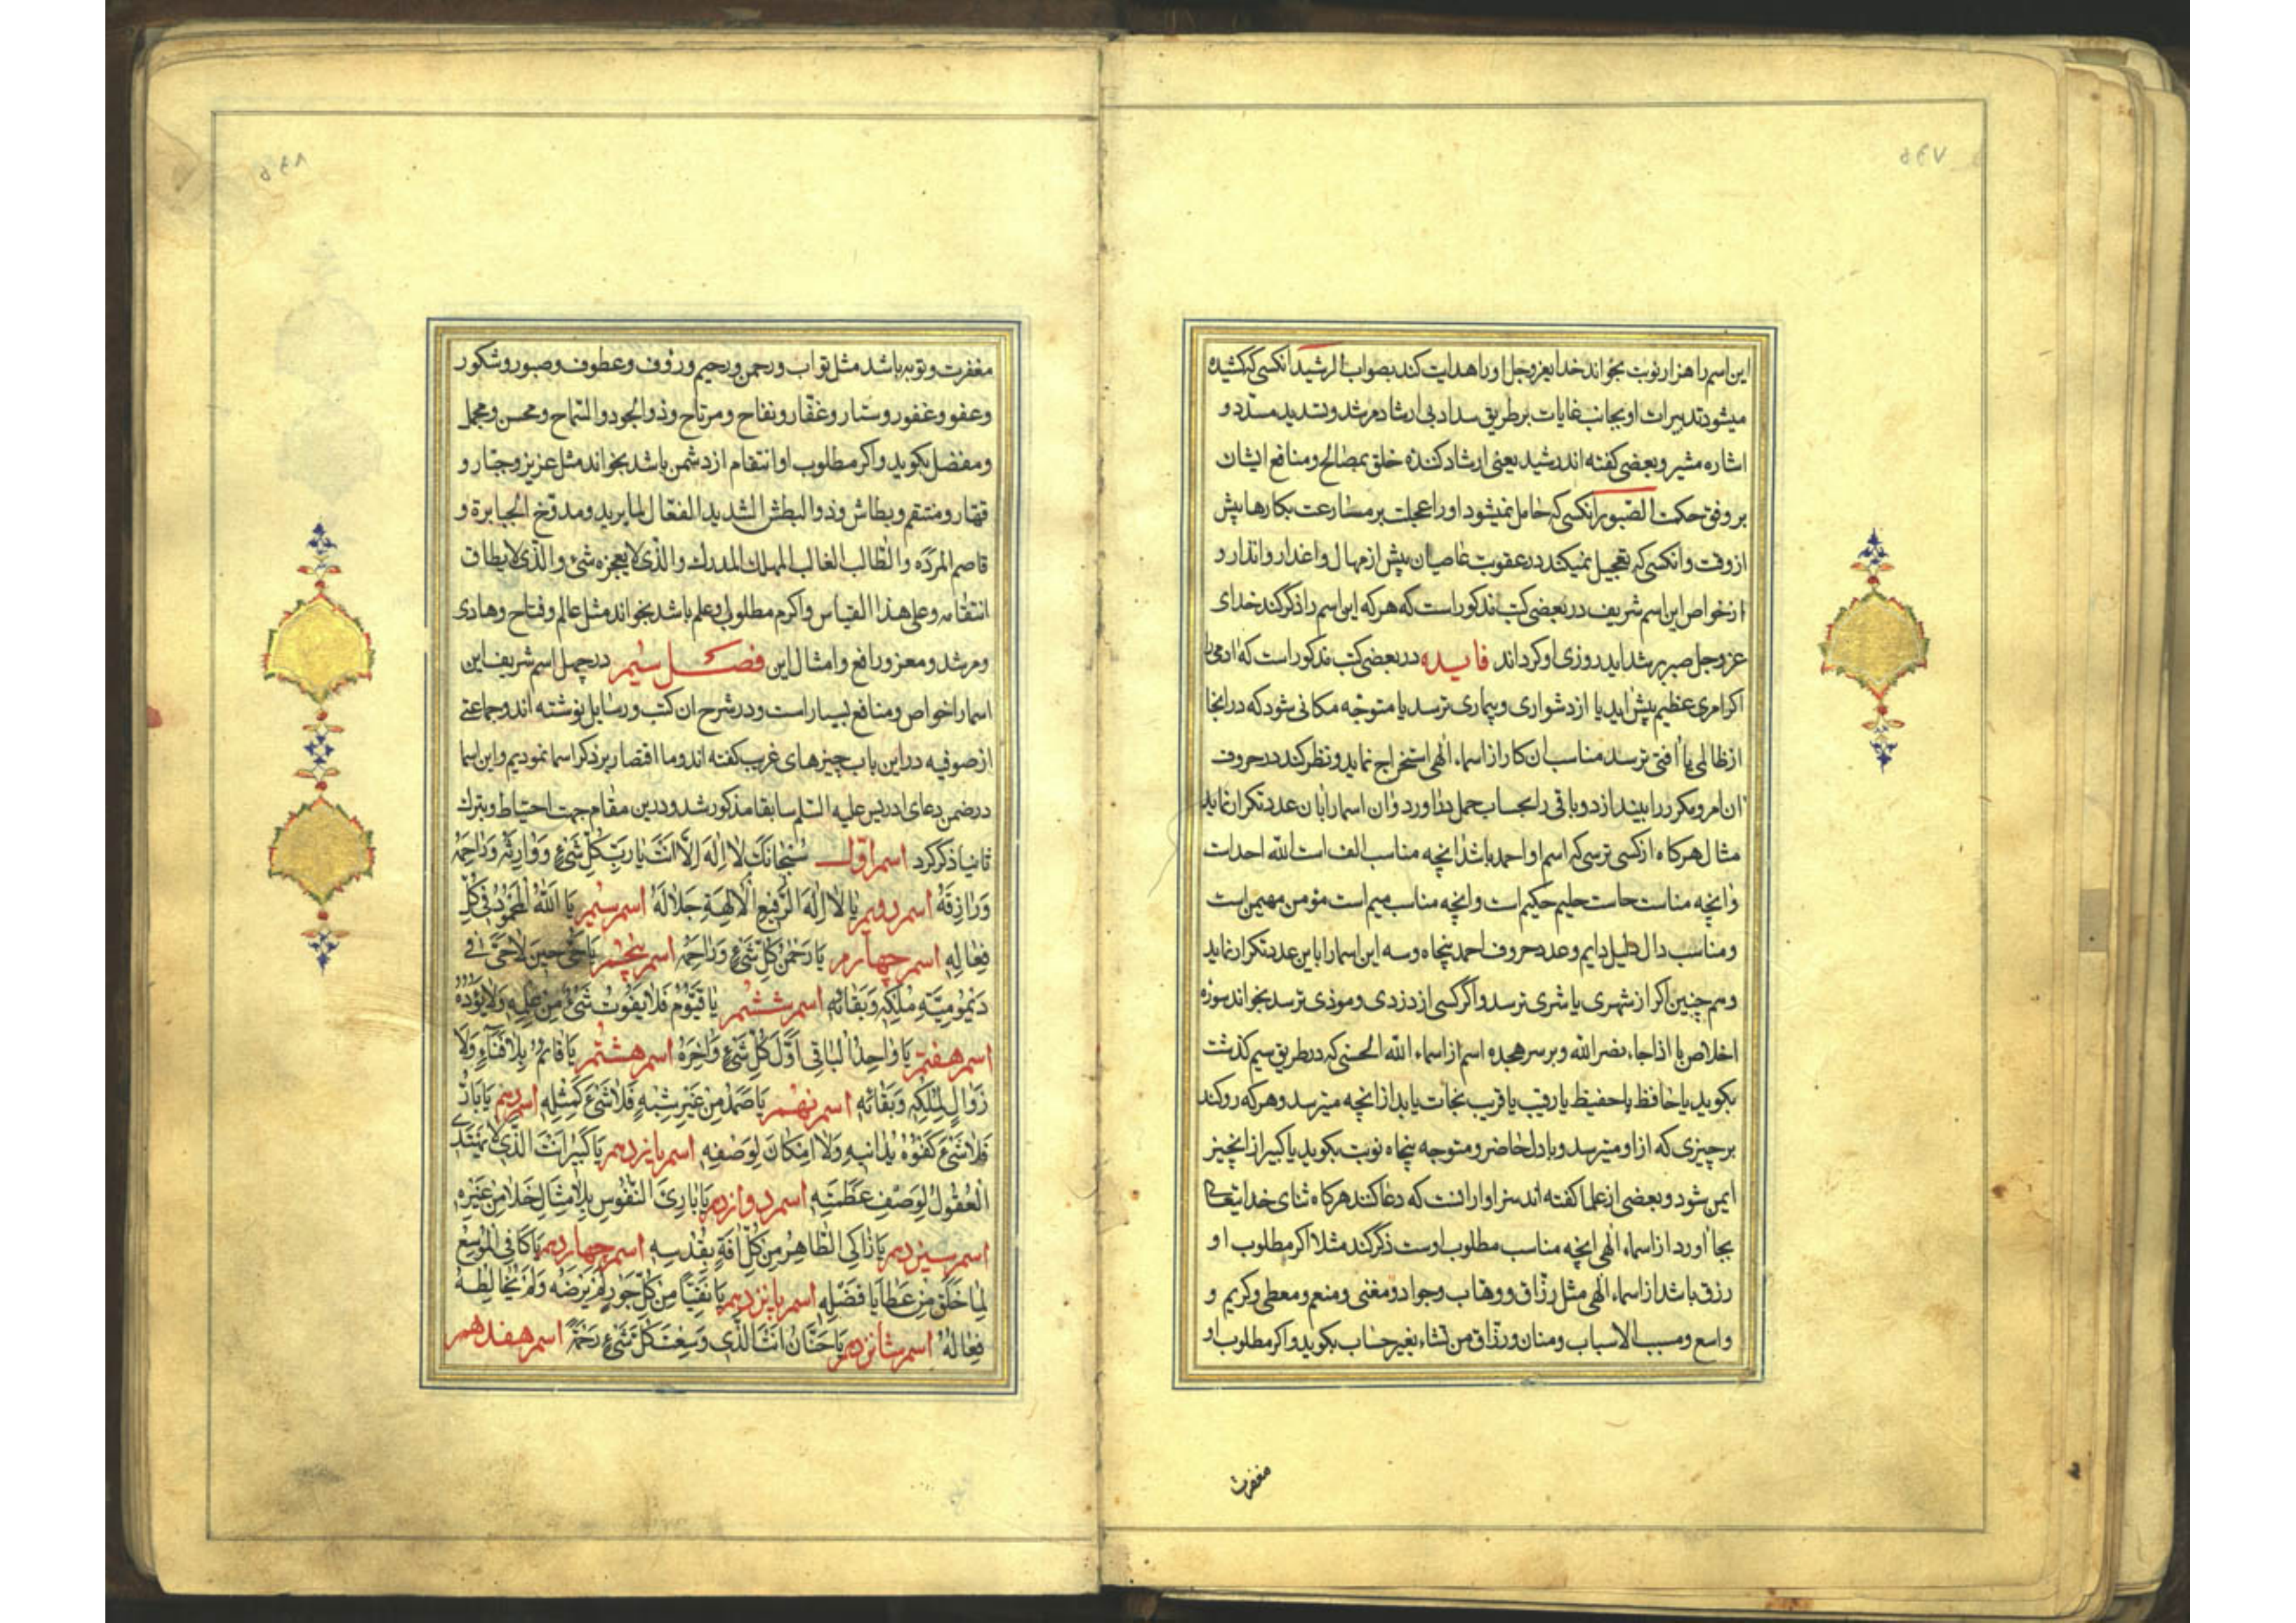 ۵۴۷
این اسم را هزار نوبت بخواند خدایعزوجل او را هدایت کند بصواب الرشید انکسی که کشیده
میشود تدبیرات او بجانب غایات بر طریق سداد بی ارشاد مرشد و تسدید مسدّد و
اشاره مشیر و بعضی کفته اند رشید یعنی ارشاد کننده خلق بمصالح و منافع ایشان
بر وفق حکمت الصّبور انکسی که حامل نمیشود او را عجلت بر مسارعت بکارها پیش
از وقت و انکسی که تعجیل نمیکند در عقوبت عاصیان پیش از مهال و اعذار و انذار و
از خواص این اسم شریف در بعضی کتب مذکور است که هر که این اسم را ذکر کند خدای
عزوجل صبر بر شداید روزی او کرداند فایده در بعضی کتب مذکور است که ادمی را
اکر امری عظیم پیش اید یا از دشواری و بیماری ترسد یا متوجّه مکانی شود که در انجا
از ظالمی یا افتی ترسد مناسب ان کار از اسماء الهی استخراج نماید و نظر کند در حروف
ان امر و مکرر را بیندازد و باقی را بحساب جمل دراورد و ان اسما را بان عدد تکرار نماید
مثال هرکاه از کسی ترسی که اسم او احمد باشد انچه مناسب الف است الله احد است
و انچه مناسب حاست حلیم حکیم است و انچه مناسب میم است مؤمن مهیمن است
و مناسب دال دلیل دایم و عدد حروف احمد پنجاه و سه این اسما را باین عدد تکرار نماید
و هم چنین اکر از شهری یا شری ترسد و اکر کسی از دزدی و موذی ترسد بخواند سوره
اخلاص یا اذا جاء نصر الله و بر سر هجده اسم از اسماء الله الحسنی که در طریق سیم کذشت
بکوید یا حافظ یا حفیظ یا رقیب یا قریب نجات یابد از انچه میترسد و هر که رو کند
بر چیزی که از او میترسد و با دل حاضر و متوجه پنجاه نوبت بکوید یا کبیر از انچیز
ایمن شود و بعضی از علما کفته اند سزاوار انست که دعا کننده هرکاه ثنای خدایتعالی
بجا اورد از اسماء الهی انچه مناسب مطلوب اوست ذکر کند مثلا اکر مطلوب او
رزق باشد از اسماء الهی مثل رزّاق و وهاب و جواد و مغنی و منعم و معطی و کریم و
واسع و مسبب الاسباب و منان و رزّاق من تشاء بغیر حساب بکوید و اکر مطلوب او
مغفرت
۵۴۸
مغفرت و توبه باشد مثل تواب و رحمن و رحیم و رؤف و عطوف و صبور و شکور
و عفو و غفور و ستار و غفّار و نفاح و مرتاح و ذو الجود و السّماح و محسن و مجمل
و مفضل بکوید و اکر مطلوب او انتقام از دشمن باشد بخواند مثل عزیز و جبّار و
قهّار و منتقم و بطاش و ذو البطش الشدید الفعّال لما یرید و مدوّخ الجبابرة و
قاصم المردَه و الطّالب الغالب المهلک المدرک و الّذی لا یعجزه شئ و الّذی لا یطاق
انتقامه و علی هذا القیاس و اکر مطلوب علم باشد بخواند مثل عالم و فتاح و هادی
و مرشد و معز و رافع و امثال این فصل سیّم در چهل اسم شریف این
اسما را خواص و منافع بسیار است و در شرح ان کتب و رسایل نوشته اند و جماعتی
از صوفیه در این باب چیزهای غریب کفته اند و ما اقتصار بر ذکر اسما نمودیم و این اسما
در ضمن دعای ادریس علیه السّلم سابقا مذکور شد و درین مقام جهت احتیاط و تبرک
ثانیا ذکر کرد اسم اوّل سُبْحانَکَ لا اِلهَ اِلاّ اَنْتَ یا رَبَّ کُلِّ شَیْءٍ وَ وارِثَهُ وَ راحِمَهُ
وَ رازِقَهُ اسم دویم یا اِلهَ الْاٰلِهَةِ الرَّفیعِ جَلالُهُ اسم سیّم یا اَللّهُ الْمَحْمُودُ فی کُلِّ
فِعالِهِ اسم چهارم یا رَحْمٰنَ کُلِّ شَیْءٍ وَ راحِمَهُ اسم پنجم یا حَیُّ حینَ لا حَیَّ فی
دَیْمُومِیَّةِ مُلْکِهِ وَ بَقائِهِ اسم ششم یا قَیُّومُ فَلا یَفُوتُ شَیْءٌ مِنْ عِلْمِهِ وَ لا یَؤُدُهُ
اسم هفتم یا واحِدُ الْباقی اَوَّلَ کُلِّ شَیْءٍ وَ اٰخِرَهُ اسم هشتم یا دائِمُ بِلا فَناءٍ وَ لا
زَوالٍ لِمُلْکِهِ وَ بَقائِهِ اسم نهم یا صَمَدُ مِنْ غَیْرِ شِبْهٍ فَلا شَیْءَ کَمِثْلِهِ اسم دهم یا بارُّ
فَلا شَیْءَ کُفْوُهُ یُدانیهِ وَ لا اِمْکانَ لِوَصْفِهِ اسم یازدهم یا کَبیرُ اَنْتَ الَّذی لا تَهْتَدی
الْعُقُولُ لِوَصْفِ عَظَمَتِهِ اسم دوازدهم یا بارِئَ النُّفُوسِ بِلا مِثالٍ خَلا مِنْ غَیْرِهِ
اسم سیزدهم یا زاکِی الطّاهِرُ مِنْ کُلِّ اٰفَةٍ بِقُدْسِهِ اسم چهاردهم یا کافِی الْمُوسِعُ
لِما خَلَقَ مِنْ عَطایا فَضْلِهِ اسم پانزدهم یا نَقِیّاً مِنْ کُلِّ جَوْرٍ لَمْ یَرْضَهُ وَ لَمْ یُخالِطْهُ
فِعالُهُ اسم شانزدهم یا حَنّانُ اَنْتَ الَّذی وَسِعَتْ کُلَّ شَیْءٍ رَحْمَتُهُ اسم هفدهم